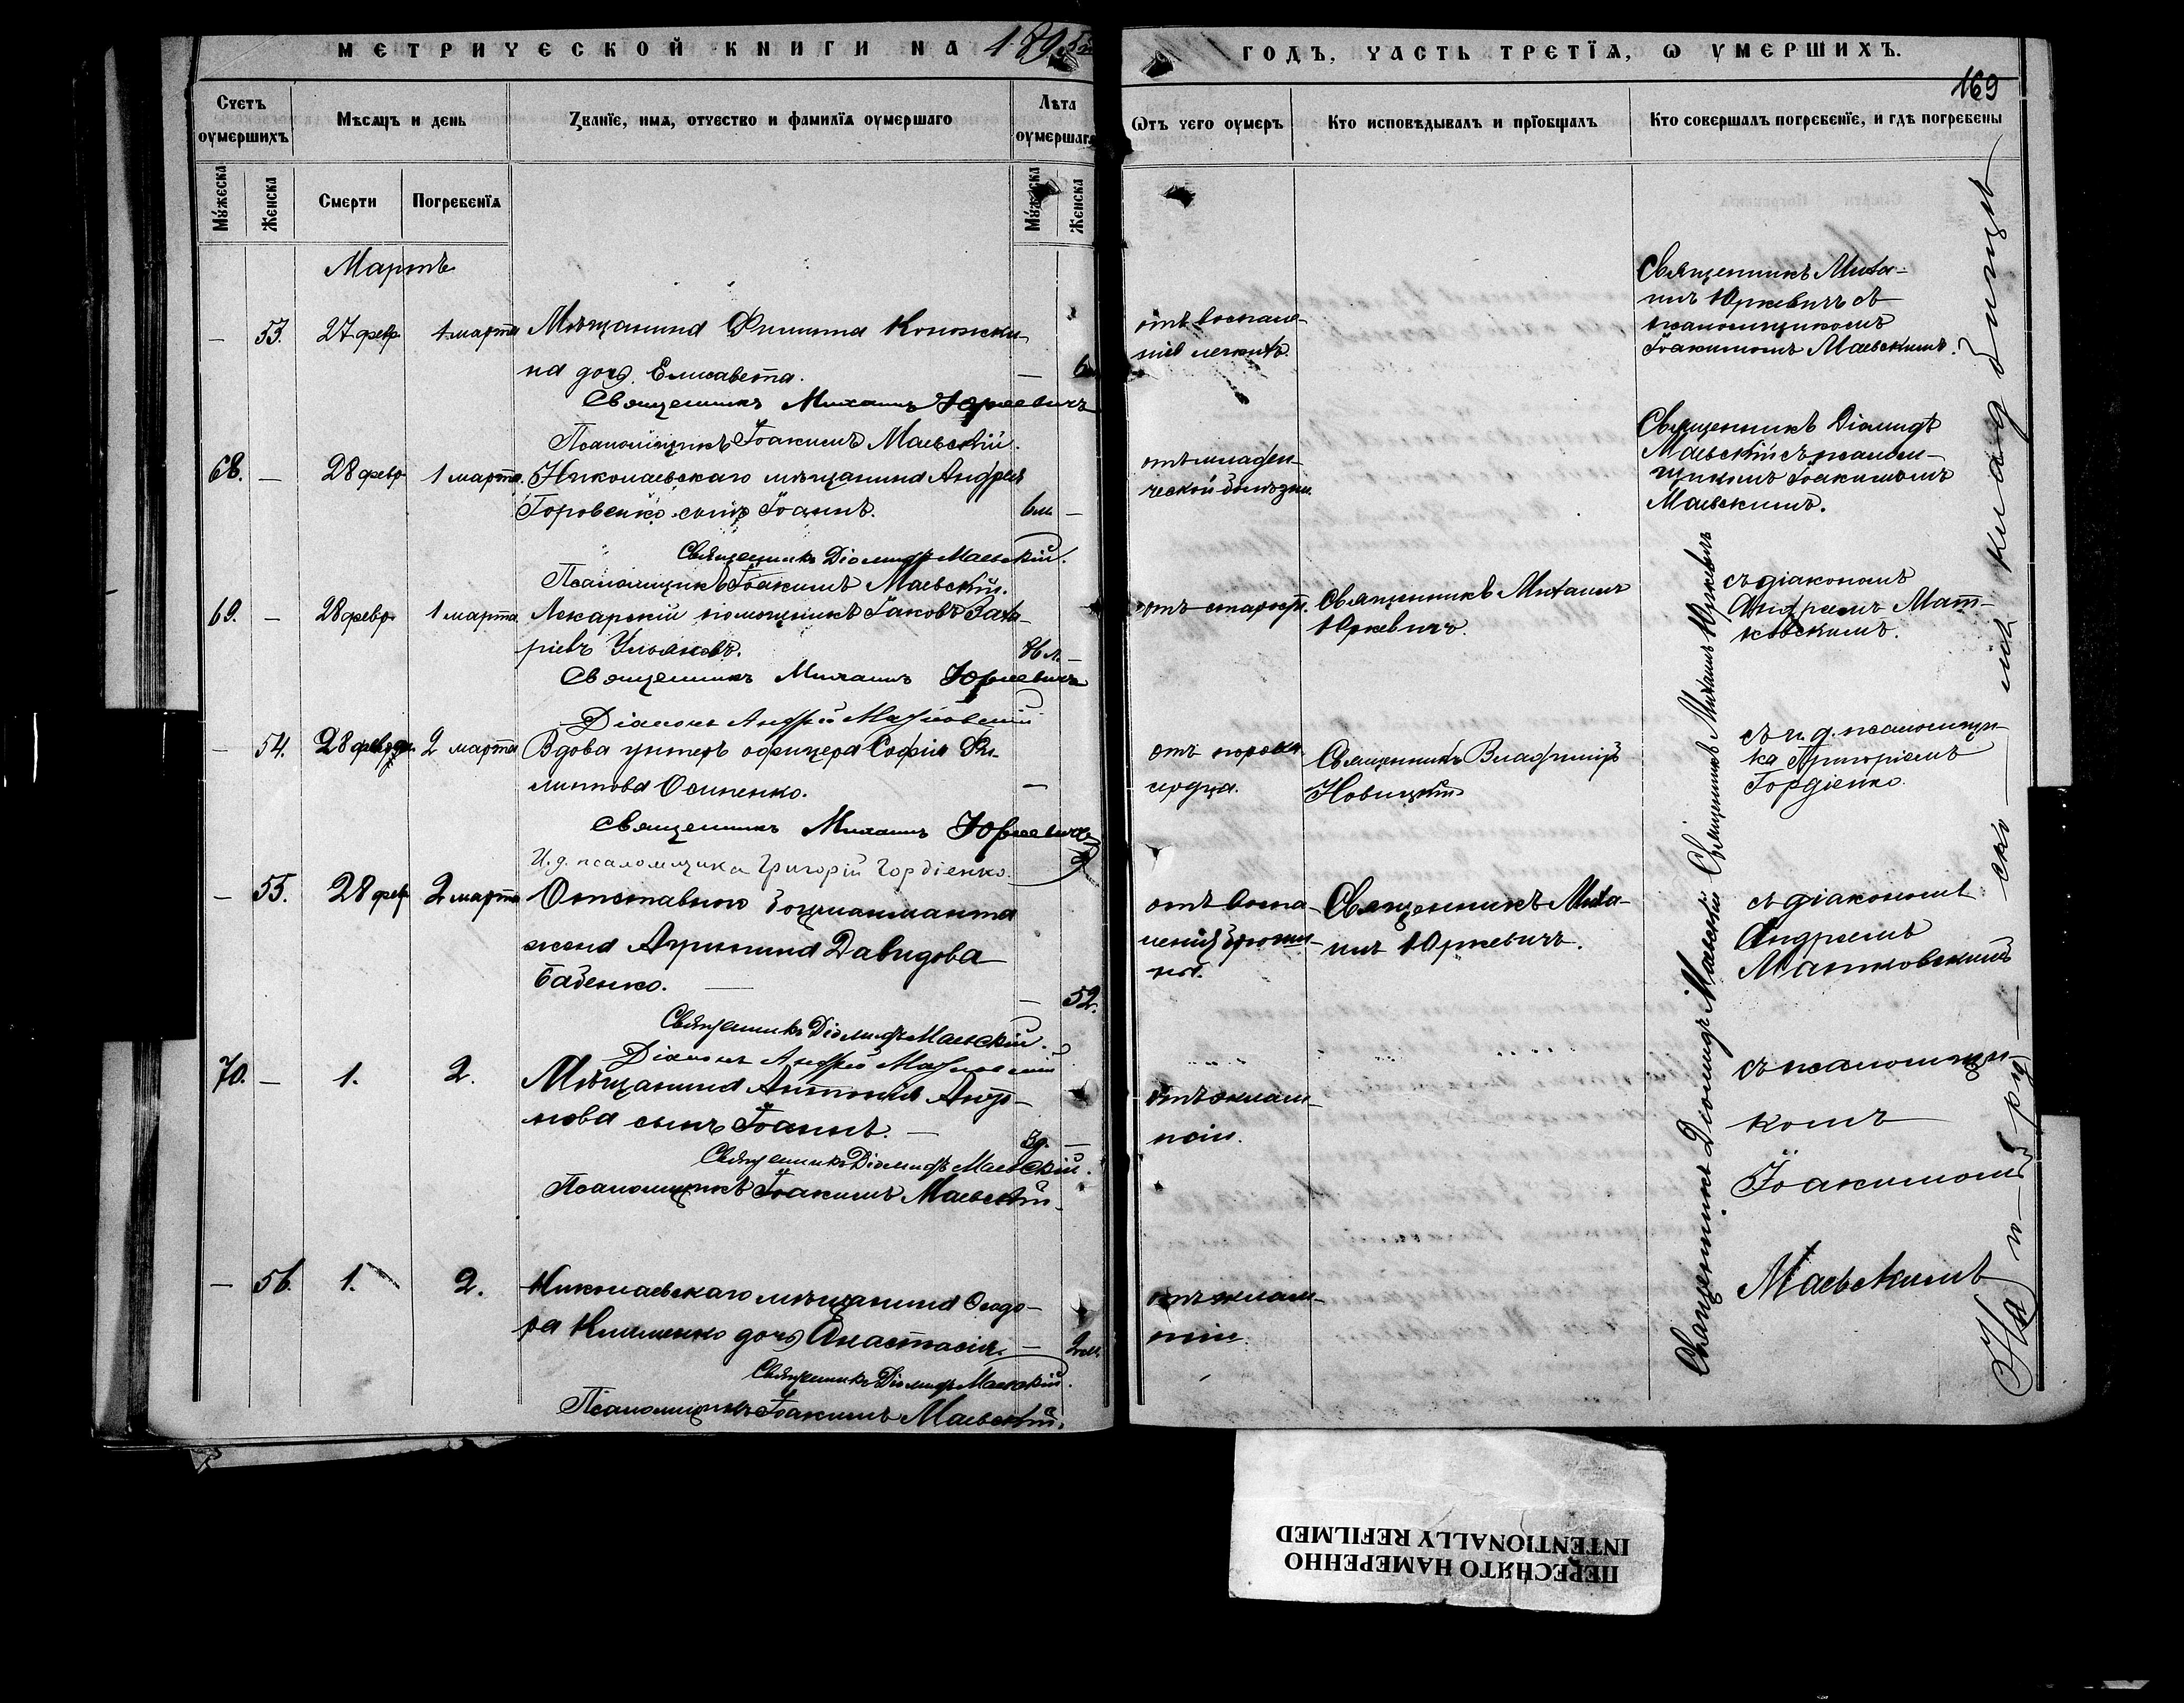 МЕТРИЧЕСКОЙ КНИГИ НА 1895
ГОДЪ, ЧАСТЬ ТРЕТІЯ, Ѡ ОУМЕРШИХЪ.
169
Счетъ оумершихъ
Мѣсяцъ и день
Званїе, имя, отчество и фамилїя оумершаго
Лѣта оумершаго
Ѿтъ чего оумеръ
Кто исповѣдывалъ и прїобщалъ
Кто совершалъ погребенїе, и гдѣ погребены
Мужеска
Женска
Смерти
Погребенїя
Мужеска
Женска
Мартъ
— 53. 27 февр. 1 марта
Мѣщанина Филиппа
на дочь Елисавета.
Священникъ Михаилъ Юркевичъ
Псаломщикъ Іоакимъ Маевскій.
отъ воспале-
нія легкихъ.
Священникъ Миха-
илъ Юркевичъ съ
псаломщикомъ
Іоакимомъ Маевскимъ.
68. — 28 февр. 1 марта
Николаевскаго мѣщанина Андрея
Горовенко сынъ Іоаннъ.
6 м. —
Священникъ Діомидъ Маевскій.
Псаломщикъ Іоакимъ Маевскій.
отъ младен-
ческой болѣзни.
Священникъ Діомидъ
Маевскій съ псалом-
щикомъ Іоакимомъ
Маевскимъ.
69. — 28 февр. 1 марта
Лекарскій помощникъ Іаковъ Заха-
ріевъ Ульяновъ.
76 л. —
Священникъ Михаилъ Юркевичъ
Діаконъ Андрей Матковскій
отъ старости.
Священникъ Михаилъ
Юркевичъ.
съ діакономъ
Андреемъ Мат-
ковскимъ.
— 54. 28 февр. 2 марта
Вдова унтеръ офицера Софія Фи-
липпова Осипенко.
—
Священникъ Михаилъ Юркевичъ
И. д. псаломщика Григорій Гордіенко.
отъ порока
сердца.
Священникъ Владиміръ
Новицкій
съ и. д. псаломщи-
ка Григоріемъ
Гордіенко.
— 55. 28 февр. 2 марта
Отставного боцманмата
жена Агрипина Давидова
Баденко.
— 52.
Священникъ Діомидъ Маевскій.
Діаконъ Андрей Матковскій
отъ воспа-
ленія брюши-
ны.
Священникъ Миха-
илъ Юркевичъ.
съ діакономъ
Андреемъ
Матковскимъ
70. — 1. 2.
Мѣщанина Антонія
сынъ Іоаннъ.
3 д. —
Священникъ Діомидъ Маевскій.
Псаломщикъ Іоакимъ Маевскій.
отъ эклам-
псіи.
съ псаломщи-
комъ
Іоакимомъ
Маевскимъ
— 56. 1. 2.
Николаевскаго мѣщанина Ѳеодо-
ра Клименко дочь Анастасія.
— 2 м.
Священникъ Діомидъ Маевскій.
Псаломщикъ Іоакимъ Маевскій.
отъ эклам-
псіи.
Священникъ Діомидъ Маевскій Священникъ Михаилъ Юркевичъ
На городскомъ кладбищѣ
ПЕРЕСНЯТО НАМЕРЕННО
INTENTIONALLY REFILMED